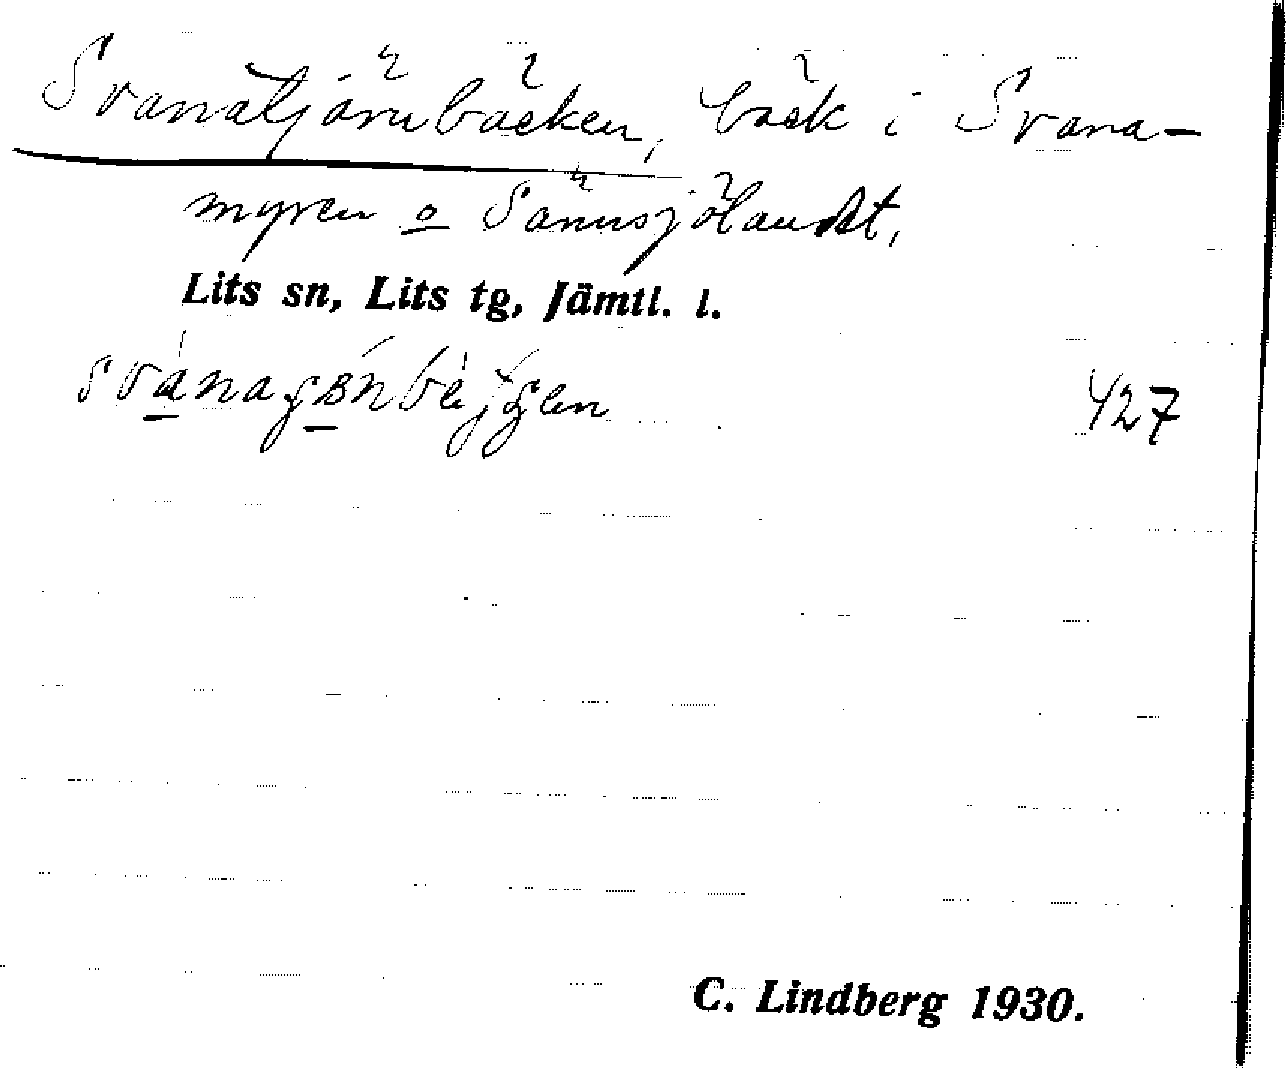 Svanatjärnbäcken, bäck i Svana-
myren o Sännsjölandet,
Lits sn, Lits tg, Jämtl. l.
427
C. Lindberg 1930.